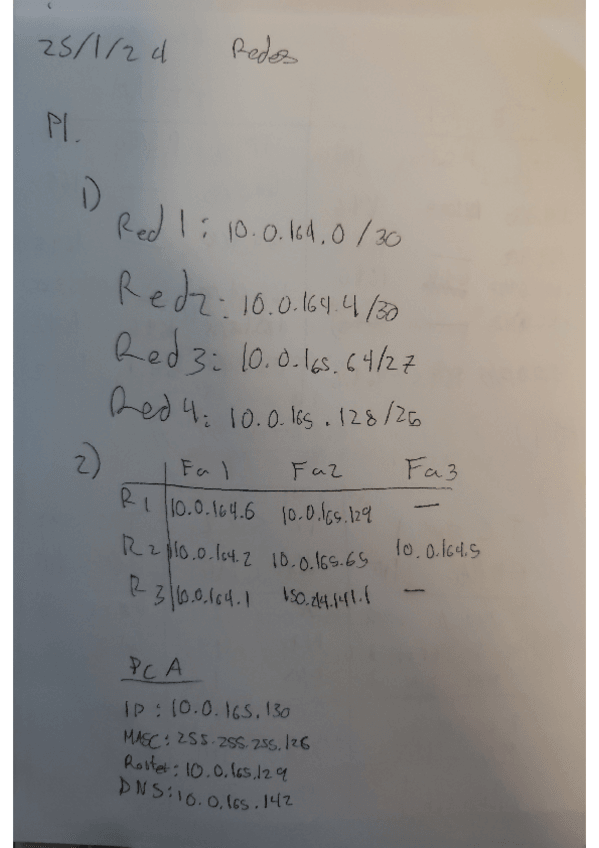 25/1/24 Redes
P1.
1)
Red 1: 10.0.164.0/30
Red 2: 10.0.164.4/30
Red 3: 10.0.165.64/27
Red 4: 10.0.165.128/26
2)
Fa1 Fa2 Fa3
R1 10.0.164.6 10.0.165.129 —
R2 10.0.164.2 10.0.165.65 10.0.164.5
R3 10.0.164.1 150.214.141.1 —
PC A
IP: 10.0.165.130
MASC: 255.255.255.126
Router: 10.0.165.129
DNS: 10.0.165.142